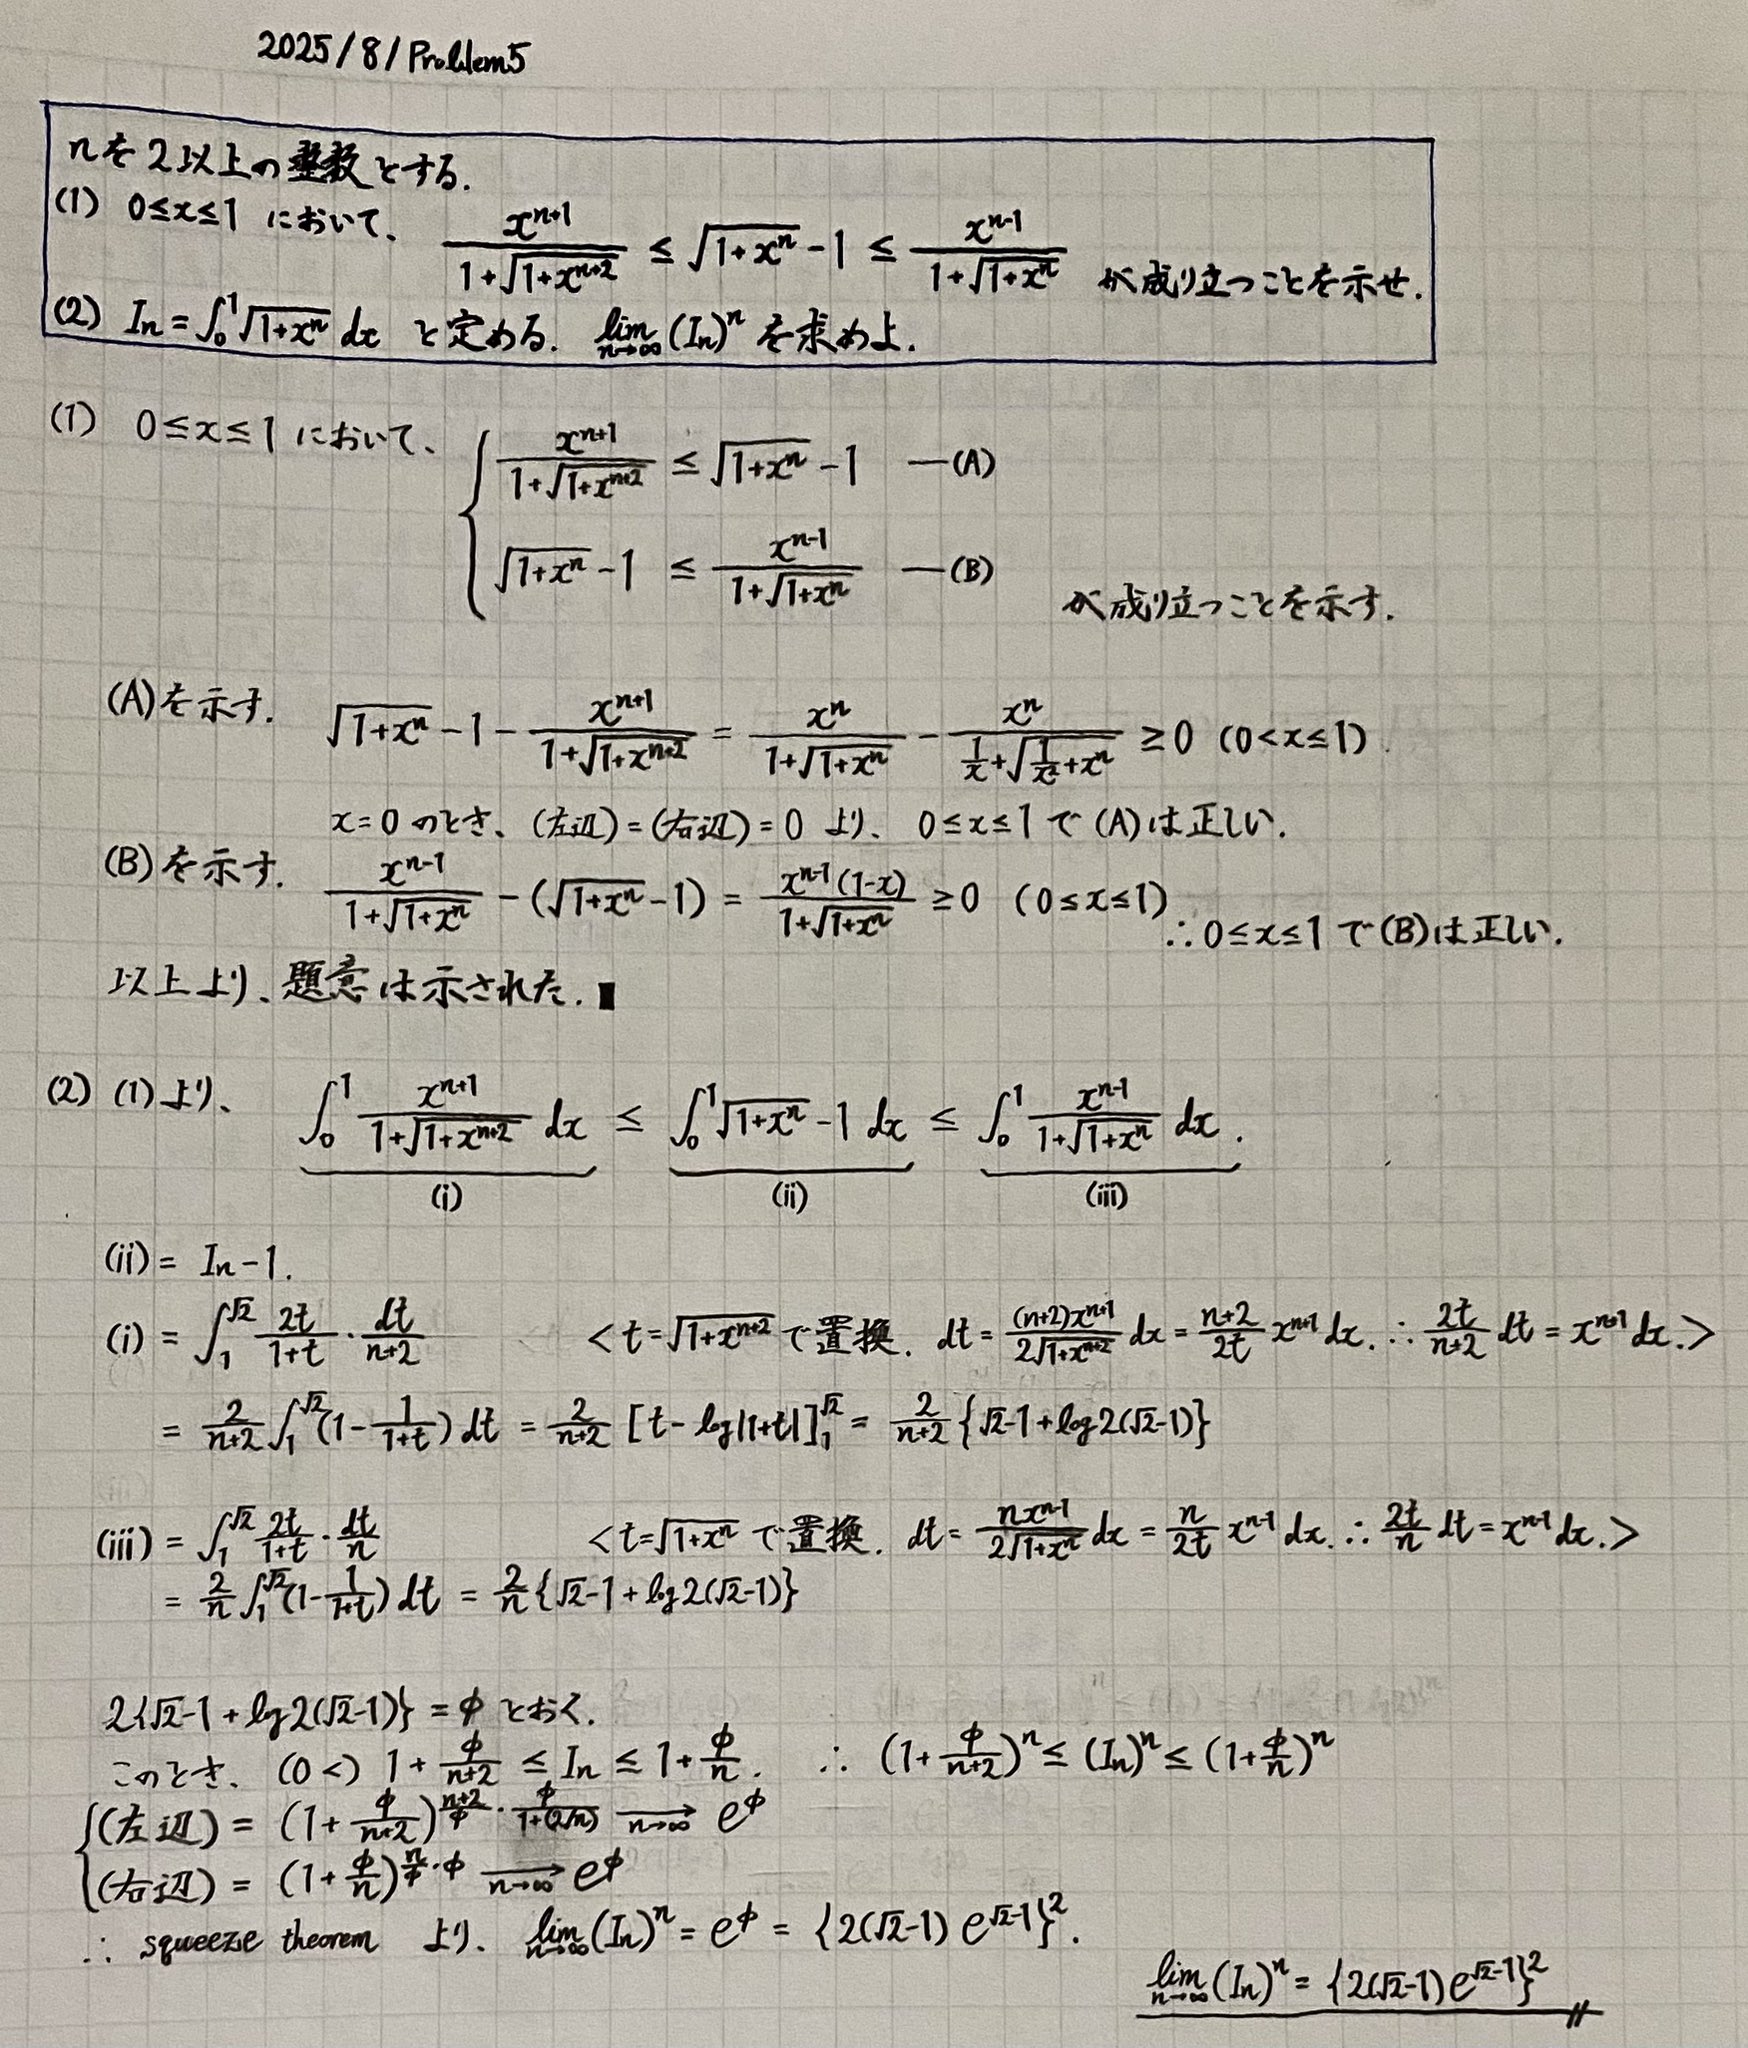 2025/8/Problem5
nを2以上の整数とする.
(1) 0≤x≤1 において、 x^{n+1}/(1+√(1+x^{n+2})) ≤ √(1+x^n) -1 ≤ x^{n-1}/(1+√(1+x^n)) が成り立つことを示せ.
(2) In = ∫_0^1 √(1+x^n) dx と定める. lim_{n→∞} (In)^n を求めよ.
(1) 0≤x≤1 において、 { x^{n+1}/(1+√(1+x^{n+2})) ≤ √(1+x^n) -1 —(A)
√(1+x^n) -1 ≤ x^{n-1}/(1+√(1+x^n)) —(B)
が成り立つことを示す.
(A)を示す. √(1+x^n) -1 - x^{n+1}/(1+√(1+x^{n+2})) = x^n/(1+√(1+x^n)) - x^n/(1/x+√(1/x^2+x^n)) ≥0 (0<x≤1).
x=0 のとき、(左辺)=(右辺)=0 より、 0≤x≤1 で (A)は正しい.
(B)を示す. x^{n-1}/(1+√(1+x^n)) - (√(1+x^n) -1) = x^{n-1}(1-x)/(1+√(1+x^n)) ≥0 (0≤x≤1)
∴ 0≤x≤1 で(B)は正しい.
以上より、題意は示された. ∎
(2) (1)より、 ∫_0^1 x^{n+1}/(1+√(1+x^{n+2})) dx ≤ ∫_0^1 √(1+x^n) -1 dx ≤ ∫_0^1 x^{n-1}/(1+√(1+x^n)) dx.
(i) (ii) (iii)
(ii) = In -1.
(i) = ∫_1^{√2} 2t/(1+t) · dt/(n+2) <t=√(1+x^{n+2}) で置換. dt = (n+2)x^{n+1}/(2√(1+x^{n+2})) dx = (n+2)/(2t) x^{n+1} dx. ∴ 2t/(n+2) dt = x^{n+1} dx.>
= 2/(n+2) ∫_1^{√2} (1- 1/(1+t)) dt = 2/(n+2) [t- log|1+t|]_1^{√2} = 2/(n+2) {√2-1+log2(√2-1)}
(iii) = ∫_1^{√2} 2t/(1+t) · dt/n <t=√(1+x^n) で置換. dt = nx^{n-1}/(2√(1+x^n)) dx = n/(2t) x^{n-1} dx. ∴ 2t/n dt = x^{n-1} dx.>
= 2/n ∫_1^{√2} (1- 1/(1+t)) dt = 2/n {√2-1+log2(√2-1)}
2{√2-1+log2(√2-1)} = φ とおく.
このとき、 (0<) 1+ φ/(n+2) ≤ In ≤ 1+ φ/n. ∴ (1+ φ/(n+2))^n ≤ (In)^n ≤ (1+ φ/n)^n
{(左辺) = (1+ φ/(n+2))^{(n+2)/φ · φ/(1+(2/n))} →_{n→∞} e^φ
(右辺) = (1+ φ/n)^{n/φ · φ} →_{n→∞} e^φ
∴ squeeze theorem より、 lim_{n→∞} (In)^n = e^φ = {2(√2-1) e^{√2-1}}^2.
lim_{n→∞} (In)^n = {2(√2-1) e^{√2-1}}^2